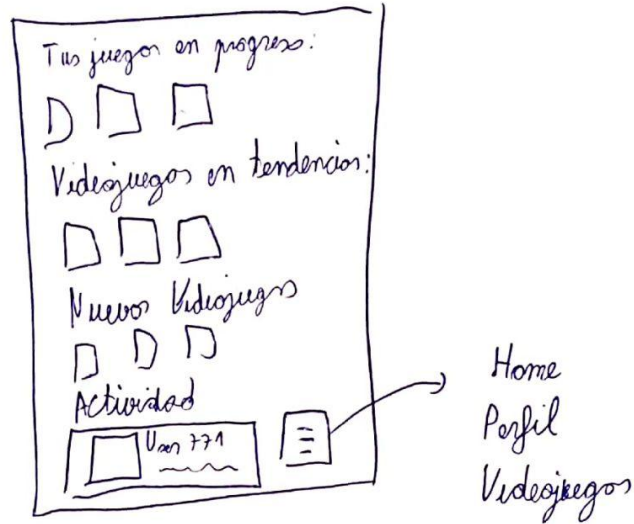 Tus juegos en progreso:
Videojuegos en tendencias:
Nuevos Videojuegos
Actividad
User 771
Home
Perfil
Videojuegos